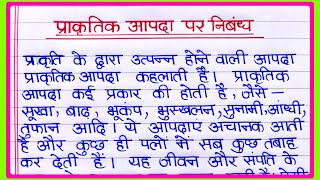 प्राकृतिक आपदा पर निबंध
प्रकृति के द्वारा उत्पन्न होने वाली आपदा
प्राकृतिक आपदा कहलाती हैं। प्राकृतिक
आपदा कई प्रकार की होती है, जैसे-
सूखा, बाढ़, भूकंप, भुस्खलन, सुनामी, आंधी,
तूफान आदि। ये आपदाए अचानक आती
हैं और कुछ ही पलो में सब कुछ तबाह
कर देती हैं। यह जीवन और संपति के